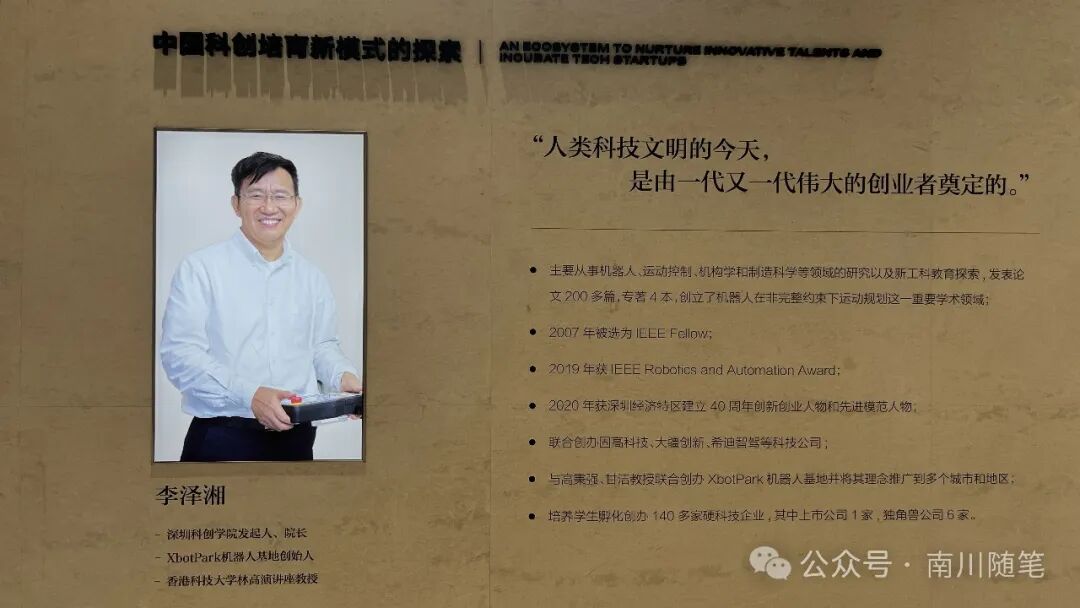 中国科创培育新模式的探索
AN ECOSYSTEM TO NURTURE INNOVATIVE TALENTS AND
INCUBATE TECH STARTUPS
“人类科技文明的今天，
是由一代又一代伟大的创业者奠定的。”
主要从事机器人、运动控制、机构学和制造科学等领域的研究以及新工科教育探索，发表论
文 200 多篇，专著 4 本，创立了机器人在非完整约束下运动规划这一重要学术领域；
2007 年被选为 IEEE Fellow；
2019 年获 IEEE Robotics and Automation Award；
2020 年获深圳经济特区建立 40 周年创新创业人物和先进模范人物；
联合创办固高科技、大疆创新、希迪智驾等科技公司；
与高秉强、甘洁教授联合创办 XbotPark 机器人基地并将其理念推广到多个城市和地区；
培养学生孵化创办 140 多家硬科技企业，其中上市公司 1 家，独角兽公司 6 家。
李泽湘
- 深圳科创学院发起人、院长
- XbotPark机器人基地创始人
- 香港科技大学林高演讲座教授
公众号 · 南川随笔